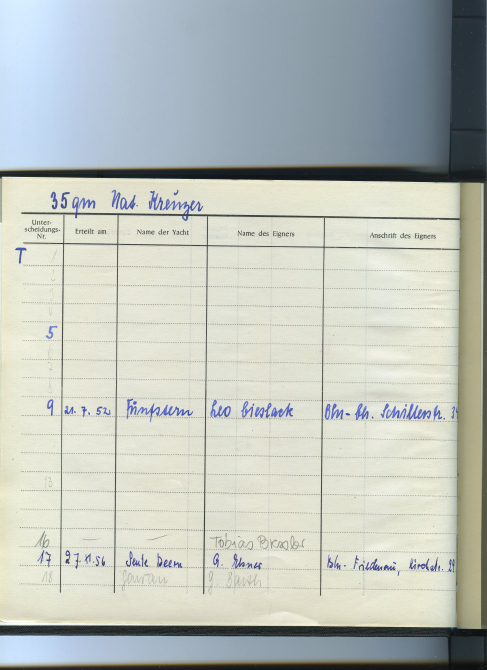 35 qm Nat. Kreuzer
Unter-
scheidungs-
Nr. Erteilt am Name der Yacht Name des Eigners Anschrift des Eigners
T 1
2
3
4
5
6
7
8
9 21. 7. 52 Fünfstern Leo Gieslack Bln- Ch. Schillerstr. 34
13
16 — — Tobias
17 27. 11. 56 Seute Deern G. Bln- Friedenau, Kirchstr. 29
18